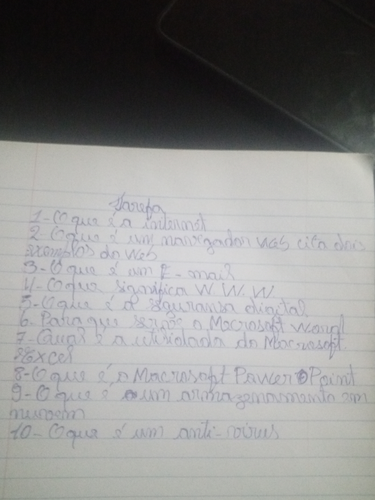 Tarefa
1-O que é a internet
2 O que é um navegador web cita dois
exemplos da web
3-O que é um E-mail
4-O que significa W.W.W.
5-O que é a siguransa digital
6-Para que serve o Macrosoft Word
7-Qual é a utilidada do Macrosoft
Excel
8-O que é o Macrosoft Pawer Point
9-O que é um armazenamento em
nuvem
10-O que é um anti-virus